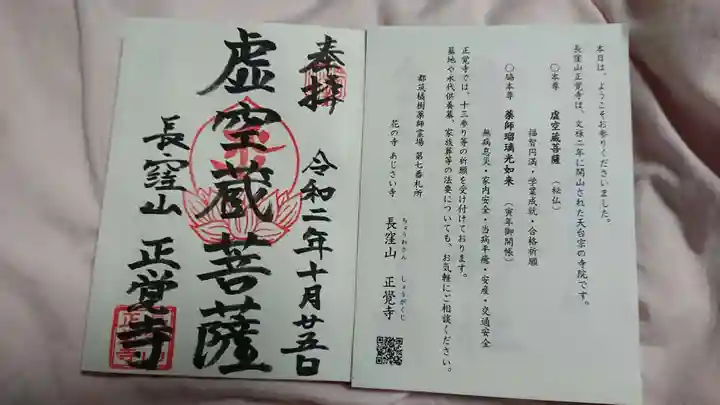 本日は、ようこそお参りくださいました。
長窪山正覚寺は、文禄二年に開山された天台宗の寺院です。
〇本尊 虚空蔵菩薩(秘仏)
福智円満・学業成就・合格祈願
〇脇本尊 薬師瑠璃光如来(寅年御開帳)
無病息災・家内安全・当病平癒・安産・交通安全
正覚寺では、十三参り等の祈願を受け付けております。
墓地や永代供養墓、家族葬等の法要についても、お気軽にご相談ください。
都筑橘樹薬師霊場 第七番札所
花の寺 あじさい寺 長窪山 正覚寺
ちょうわさん しょうがくじ
奉拝
令和二年十月廿五日
虚空蔵菩薩
長窪山 正覚寺